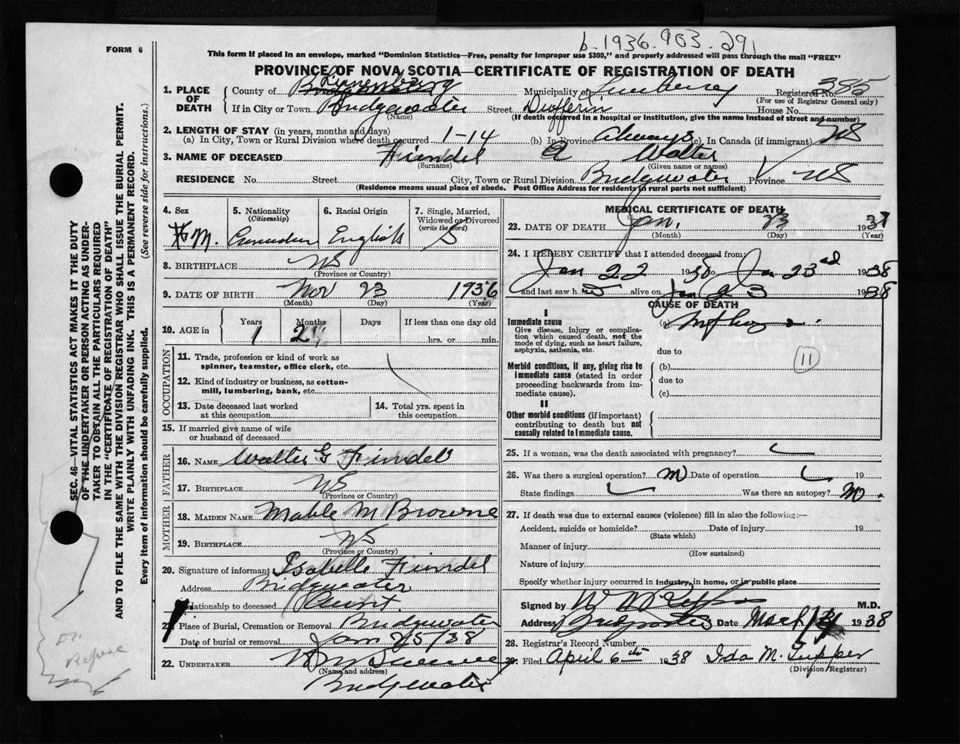 b. 1936. 903. 291
FORM 6
This form if placed in an envelope, marked "Dominion Statistics—Free, penalty for improper use $300," and properly addressed will pass through the mail "FREE"
PROVINCE OF NOVA SCOTIA—CERTIFICATE OF REGISTRATION OF DEATH
1. PLACE OF DEATH
County of Lunenburg Municipality of Registered No. 385
(For use of Registrar General only)
If in City or Town Bridgewater Street Dufferin House No.
(Name) (If death occurred in a hospital or institution, give the name instead of street and number)
2. LENGTH OF STAY (in years, months and days)
(a) In City, Town or Rural Division where death occurred 1-14 (b) In Province Always (c). In Canada (if immigrant) NS
3. NAME OF DECEASED Findel A Walter
(Surname) (Given name or names)
RESIDENCE No. Street City, Town or Rural Division Bridgewater Province NS
(Residence means usual place of abode. Post Office Address for residents in rural parts not sufficient)
4. Sex M.
5. Nationality (Citizenship) Canadian
6. Racial Origin English
7. Single, Married, Widowed or Divorced (write the word) S
8. BIRTHPLACE NS
(Province or Country)
9. DATE OF BIRTH Nov 23 1936
(Month) (Day) (Year)
10. AGE in Years Months Days If less than one day old
1 2 hrs. or min.
OCCUPATION
11. Trade, profession or kind of work as spinner, teamster, office clerk, etc.
12. Kind of industry or business, as cotton-mill, lumbering, bank, etc.
13. Date deceased last worked at this occupation
14. Total yrs. spent in this occupation
15. If married give name of wife or husband of deceased
FATHER
16. NAME Walter G Findel
17. BIRTHPLACE NS
(Province or Country)
MOTHER
18. MAIDEN NAME Mable M Browne
19. BIRTHPLACE NS
(Province or Country)
20. Signature of informant Isabelle Findel
Address Bridgewater
Relationship to deceased Aunt.
21. Place of Burial, Cremation or Removal Bridgewater
Date of burial or removal Jan 25/38
22. UNDERTAKER
(Name and address)
Bridgewater
MEDICAL CERTIFICATE OF DEATH
23. DATE OF DEATH Jan. 23 193
(Month) (Day) (Year)
24. I HEREBY CERTIFY that I attended deceased from:
Jan 22 1938 to Jan 23rd 1938
and last saw h alive on Jan 23 1938
CAUSE OF DEATH
I
Immediate cause (a)
Give disease, injury or complication which caused death, not the mode of dying, such as heart failure, asphyxia, asthenia, etc.
due to
11
Morbid conditions, if any, giving rise to immediate cause (stated in order proceeding backwards from immediate cause).
(b)
due to
(c)
II
Other morbid conditions (if important) contributing to death but not causally related to immediate cause.
25. If a woman, was the death associated with pregnancy?
26. Was there a surgical operation? no Date of operation 19
State findings Was there an autopsy? no.
27. If death was due to external causes (violence) fill in also the following:—
Accident, suicide or homicide? Date of injury 19
(State which)
Manner of injury
(How sustained)
Nature of injury
Specify whether injury occurred in industry, in home, or in public place
Signed by M.D.
Address Bridgewater Date March 1938
28. Registrar's Record Number
29. Filed April 6th 1938 Ida M. Tupper
(Division Registrar)
SEC. 46—VITAL STATISTICS ACT MAKES IT THE DUTY
OF THE UNDERTAKER OR PERSON ACTING AS UNDERTAKER TO OBTAIN ALL THE PARTICULARS REQUIRED
IN THE "CERTIFICATE OF REGISTRATION OF DEATH"
AND TO FILE THE SAME WITH THE DIVISION REGISTRAR WHO SHALL ISSUE THE BURIAL PERMIT.
WRITE PLAINLY WITH UNFADING INK. THIS IS A PERMANENT RECORD.
Every item of information should be carefully supplied. (See reverse side for instructions.)